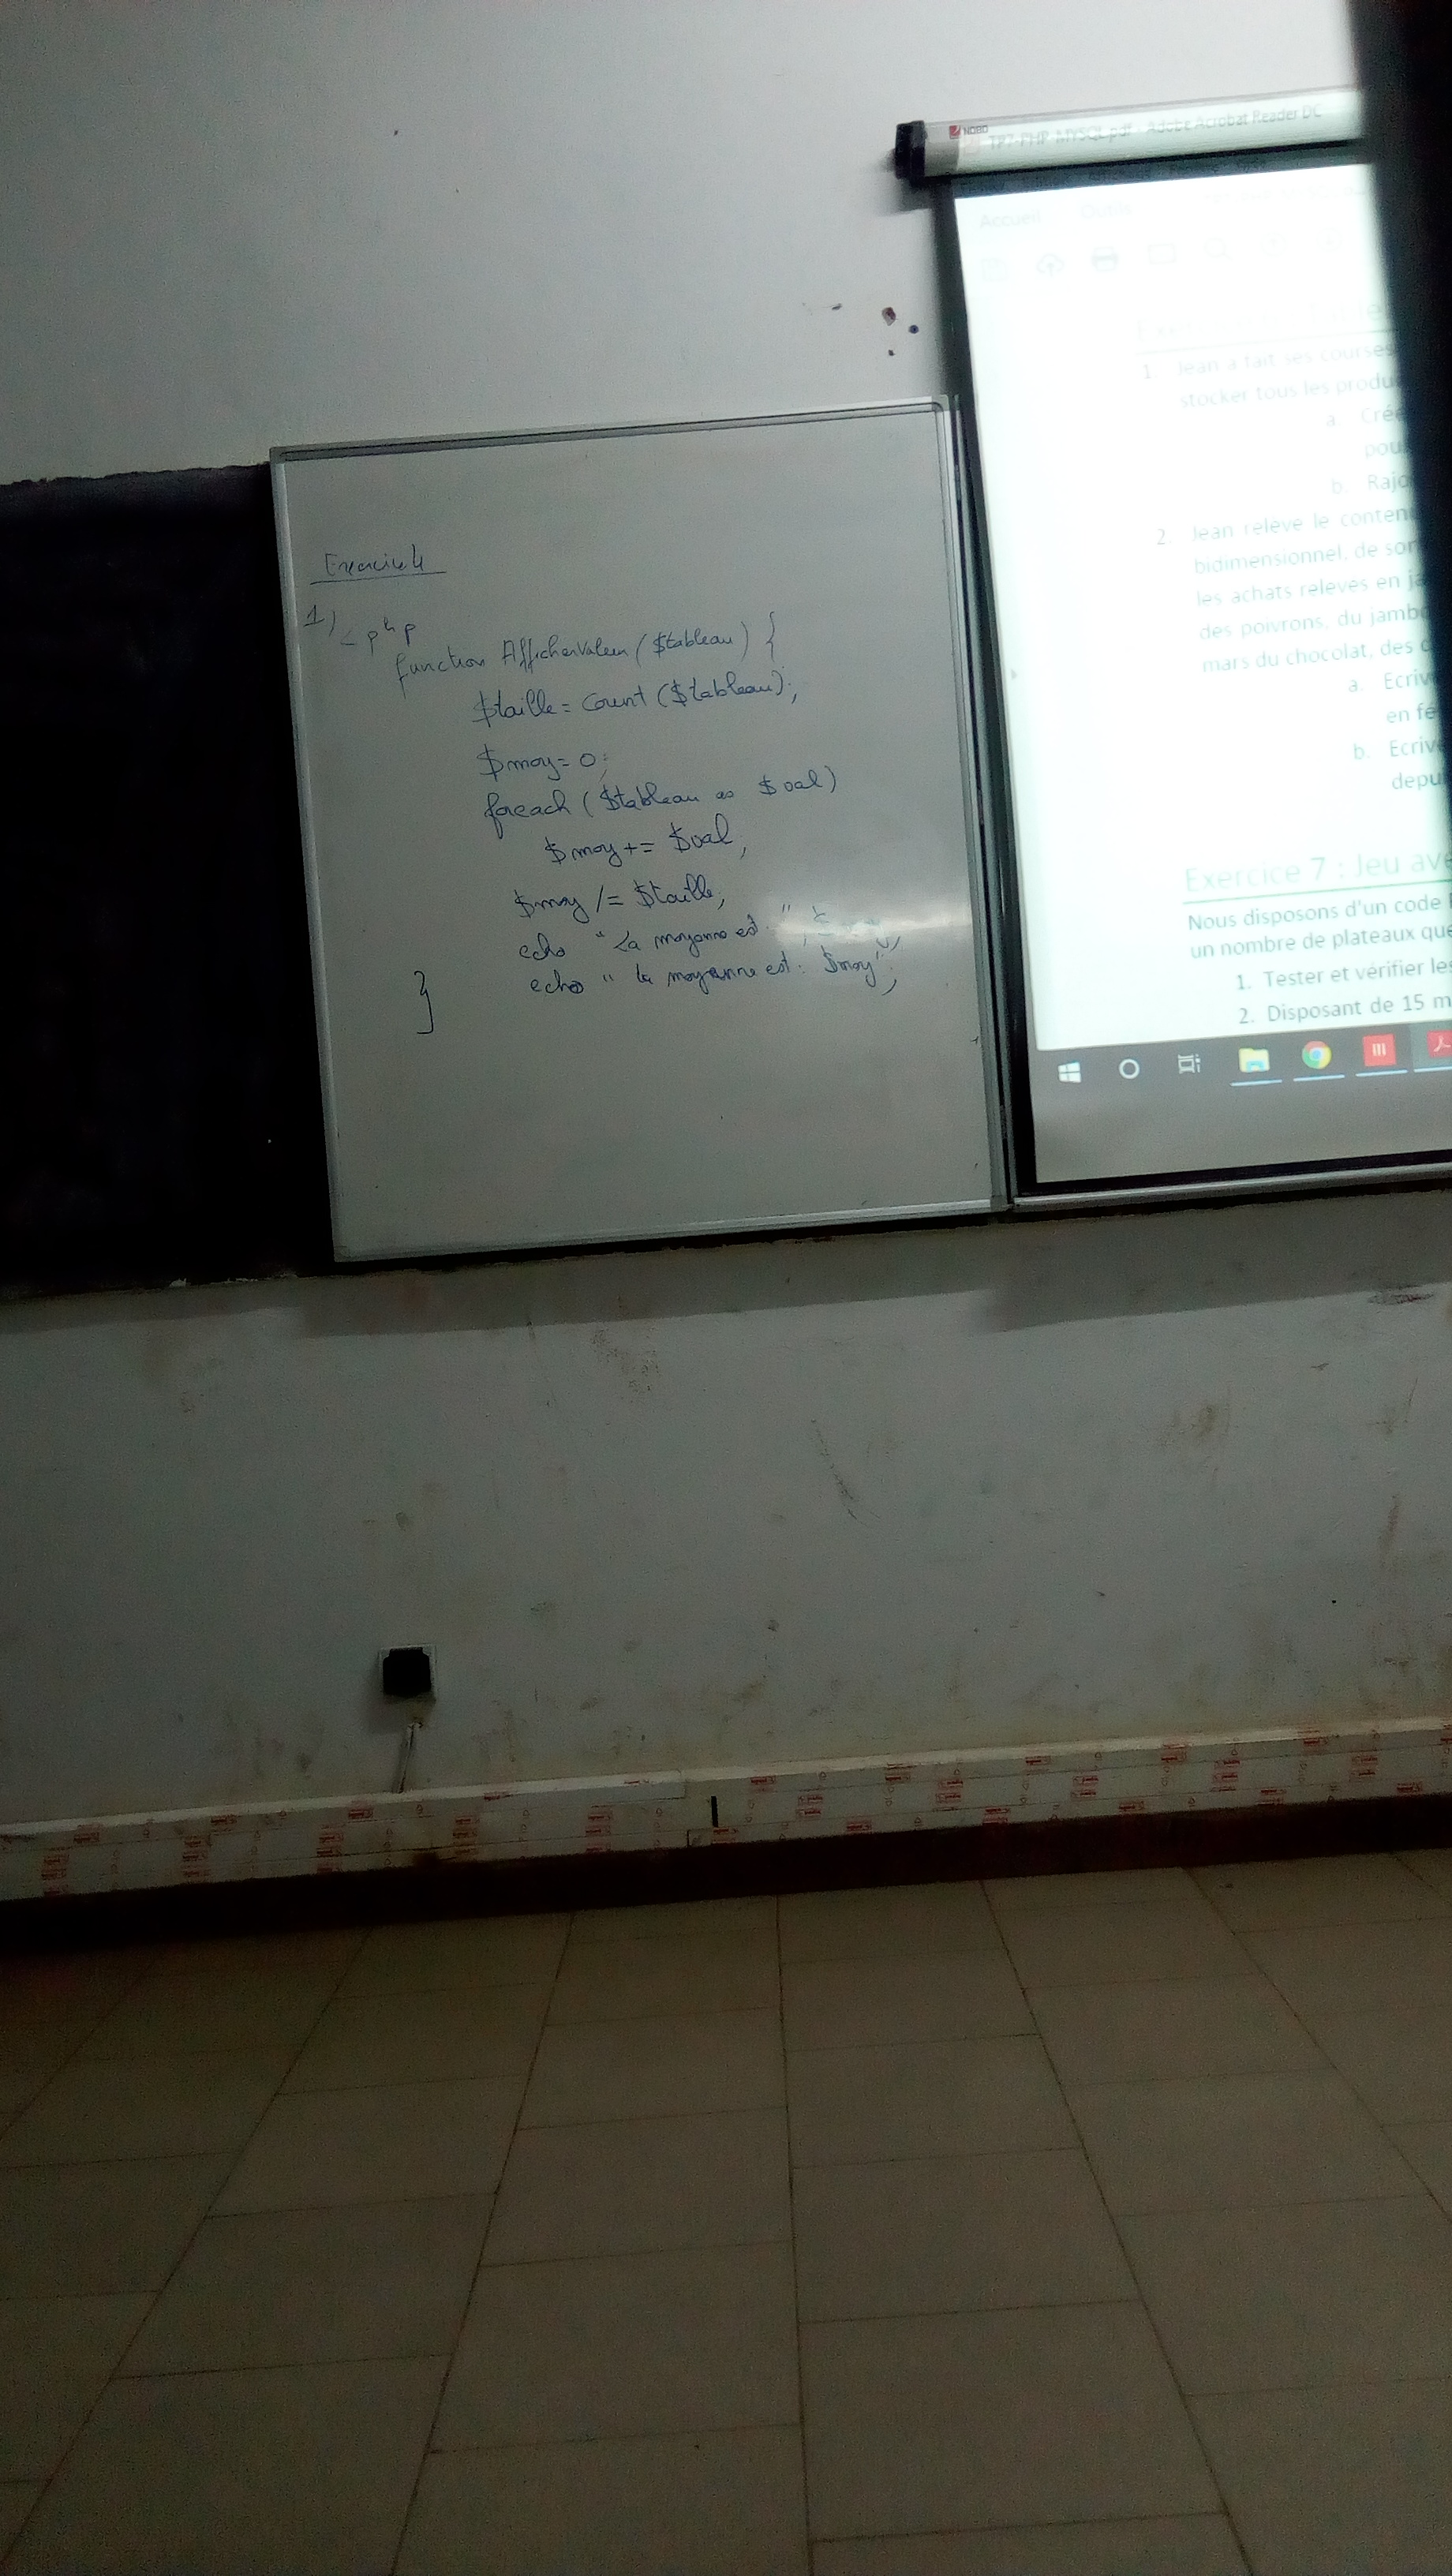 Exercice 4
1)
< php
function AfficherValeur ($tableau) {
$taille = count ($tableau);
$moy = 0;
foreach ($tableau as $val)
$moy += $val;
$moy /= $taille;
echo " La moyenne est "
echo " la moyenne est : $moy";
}
NOBO
TP2-PHP-MYSQL.pdf - Adobe Acrobat Reader DC
Accueil Outils
1. Jean a fait ses courses
stocker tous les produ
a. Crée
pou
b. Rajo
2. Jean relève le conten
bidimensionnel, de sor
les achats relevés en ja
des poivrons, du jambo
mars du chocolat, des
a. Ecriv
en fé
b. Ecriv
depu
Exercice 7 : Jeu ave
Nous disposons d'un code
un nombre de plateaux que
1. Tester et vérifier les
2. Disposant de 15 m